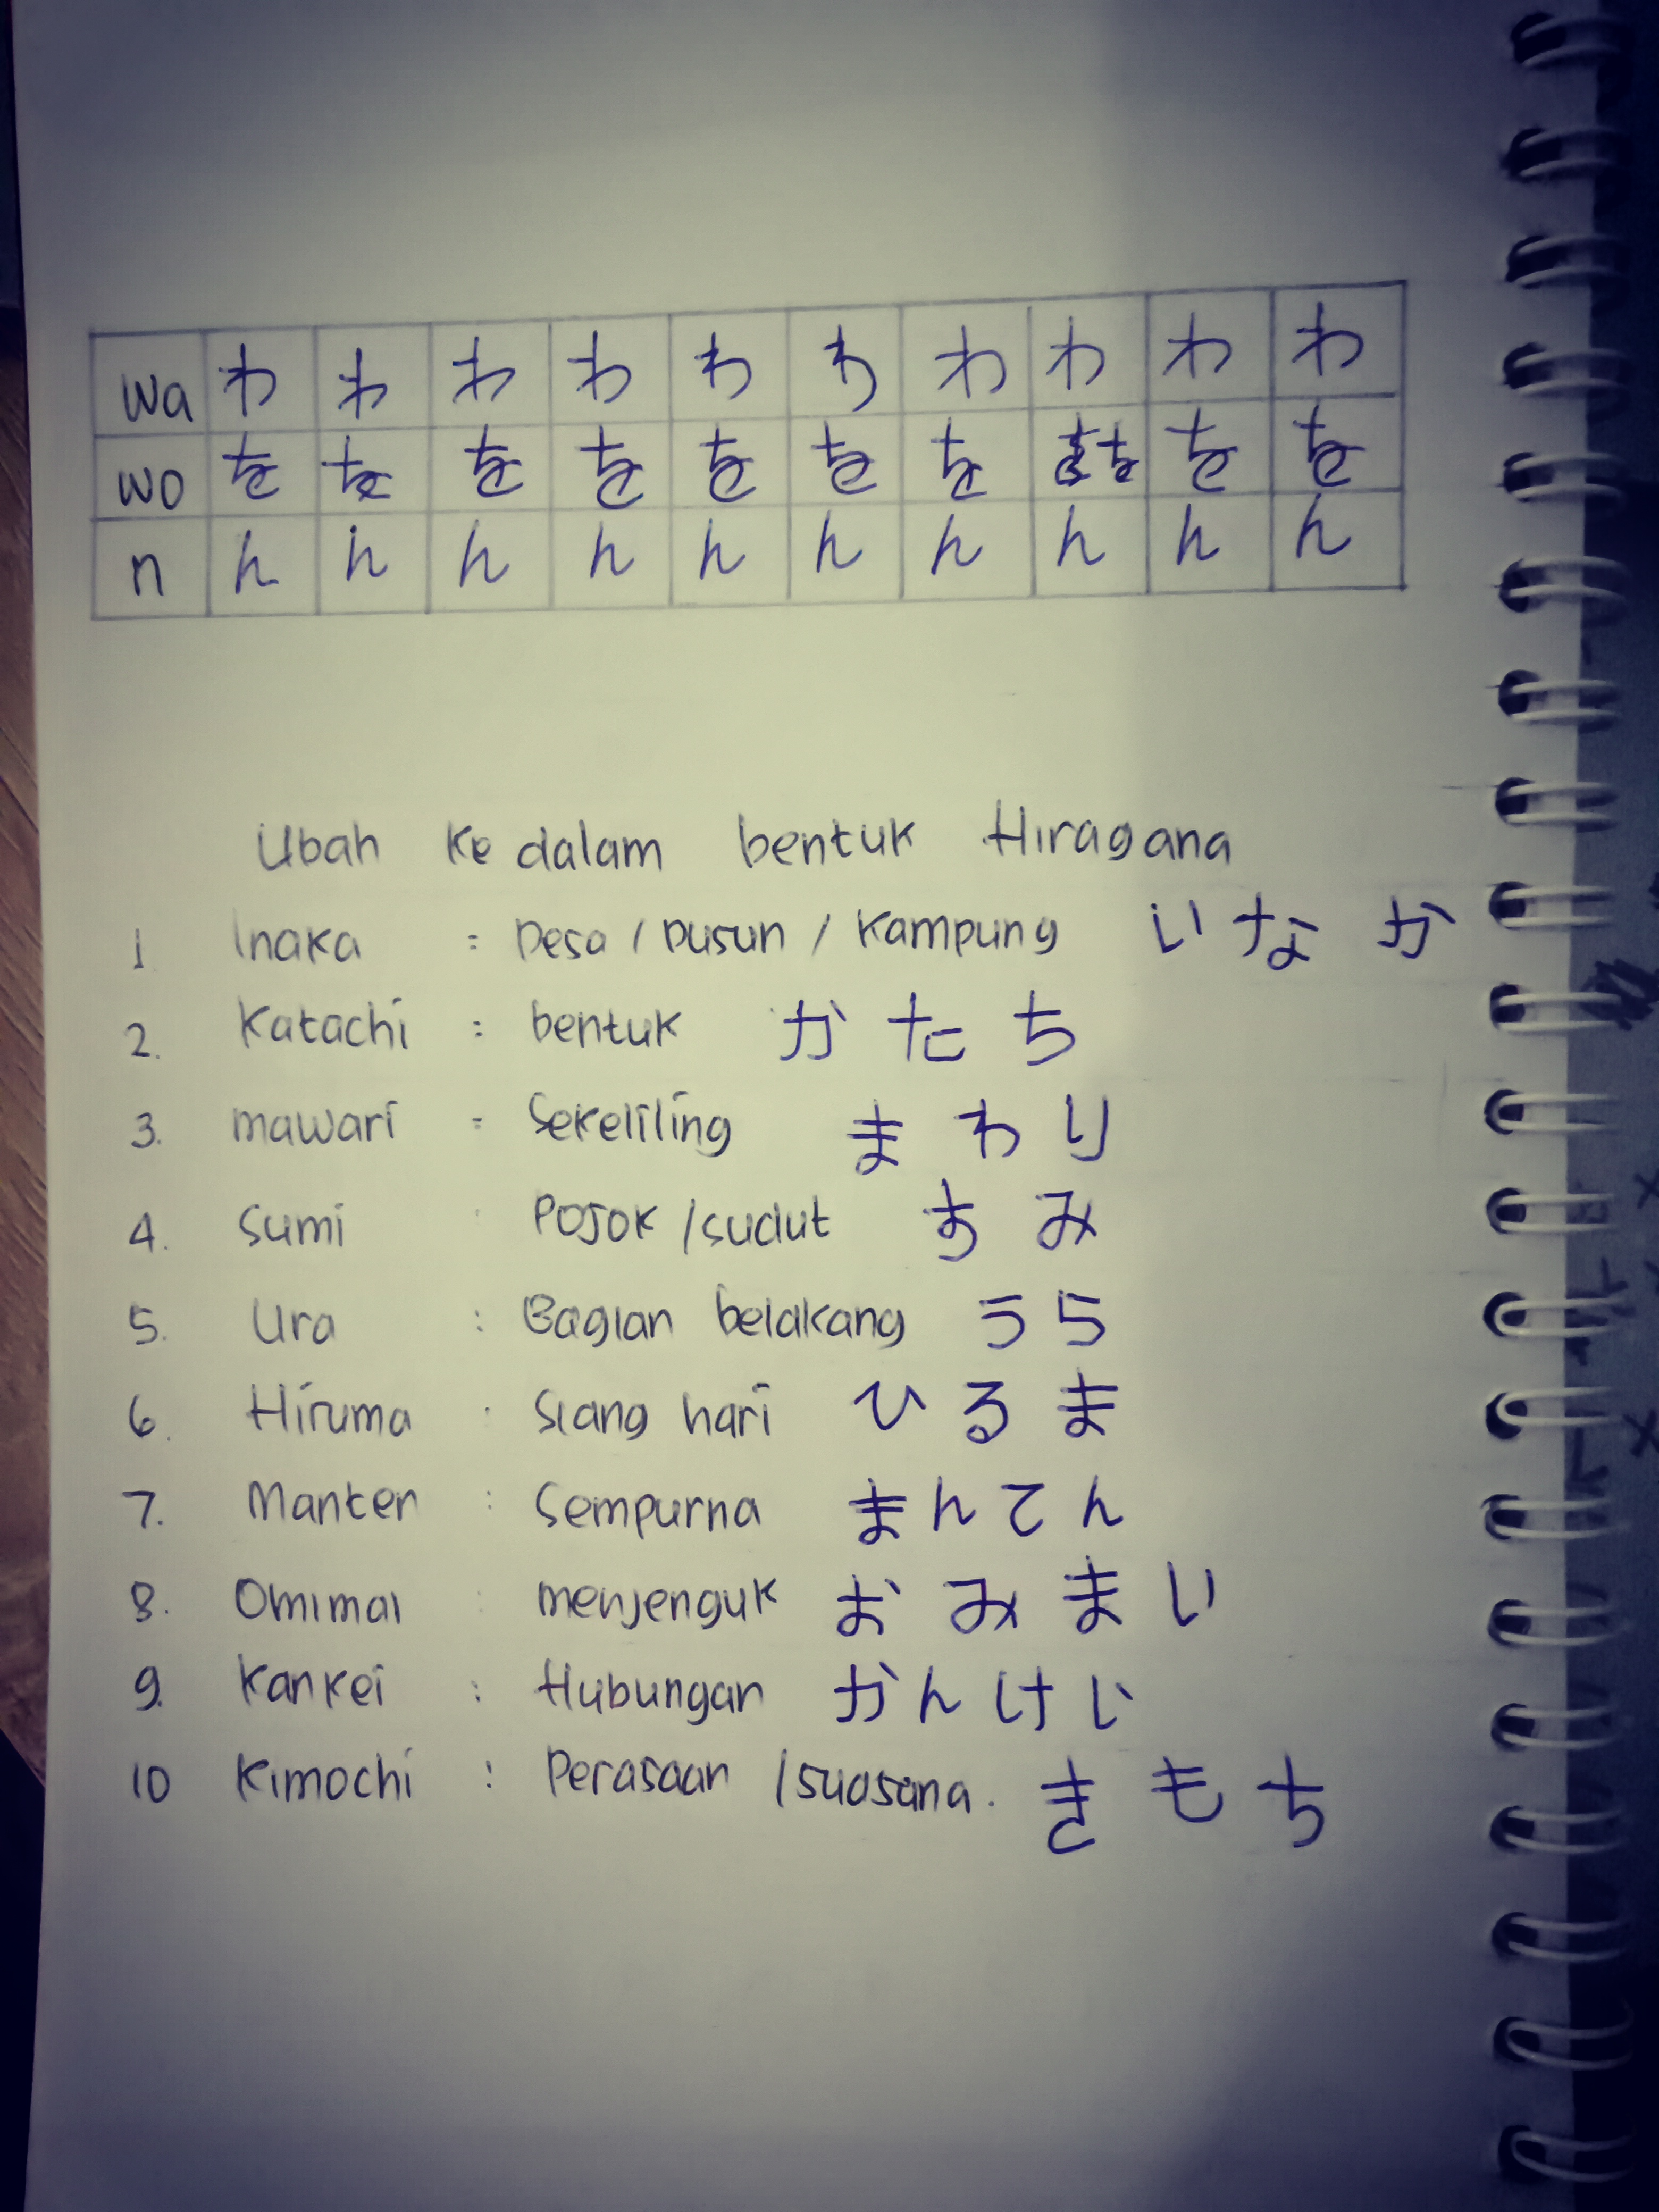 wa わ わ わ わ わ わ わ わ わ わ
wo を を を を を を を を を を
n ん ん ん ん ん ん ん ん ん ん
Ubah ke dalam bentuk Hiragana
1 Inaka = Desa / Dusun / Kampung いなか
2. Katachi : bentuk かたち
3. mawari = Sekeliling まわり
4. Sumi : Pojok / sudut すみ
5. Ura : Bagian belakang うら
6. Hiruma : Siang hari ひるま
7. Manten : Sempurna まんてん
8. Omimai : menjenguk おみまい
9. Kankei : Hubungan かんけい
10 Kimochi : Perasaan / suasana. きもち